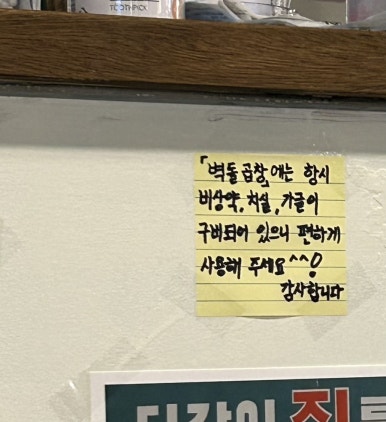 TOOTHPICK
「벽돌곱창」에는 항시
비상약, 치실, 가글이
구비되어 있으니 편하게
사용해 주세요^^!
감사합니다